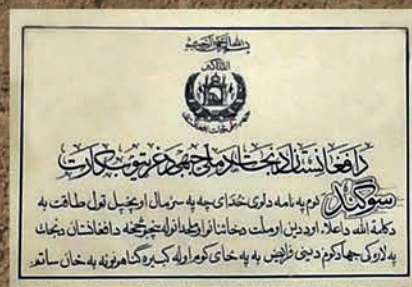 بسم الله الرحمن الرحیم
الله اکبر
د افغانستان د نجات د ملی جبهی د غړیتوب کارت
سوګند کوم په نامه دلوی خدای چه په سر مال او په خپل ټول طاقت به
د کلمة الله د اعلاء او د دین او ملت د خائنانو او ملحدانو له څخه د افغانستان د نجات
په لار کی جهاد کوم دینی فرایض به په ځای کوم او له کبیره ګناهونو به ځان ساتم